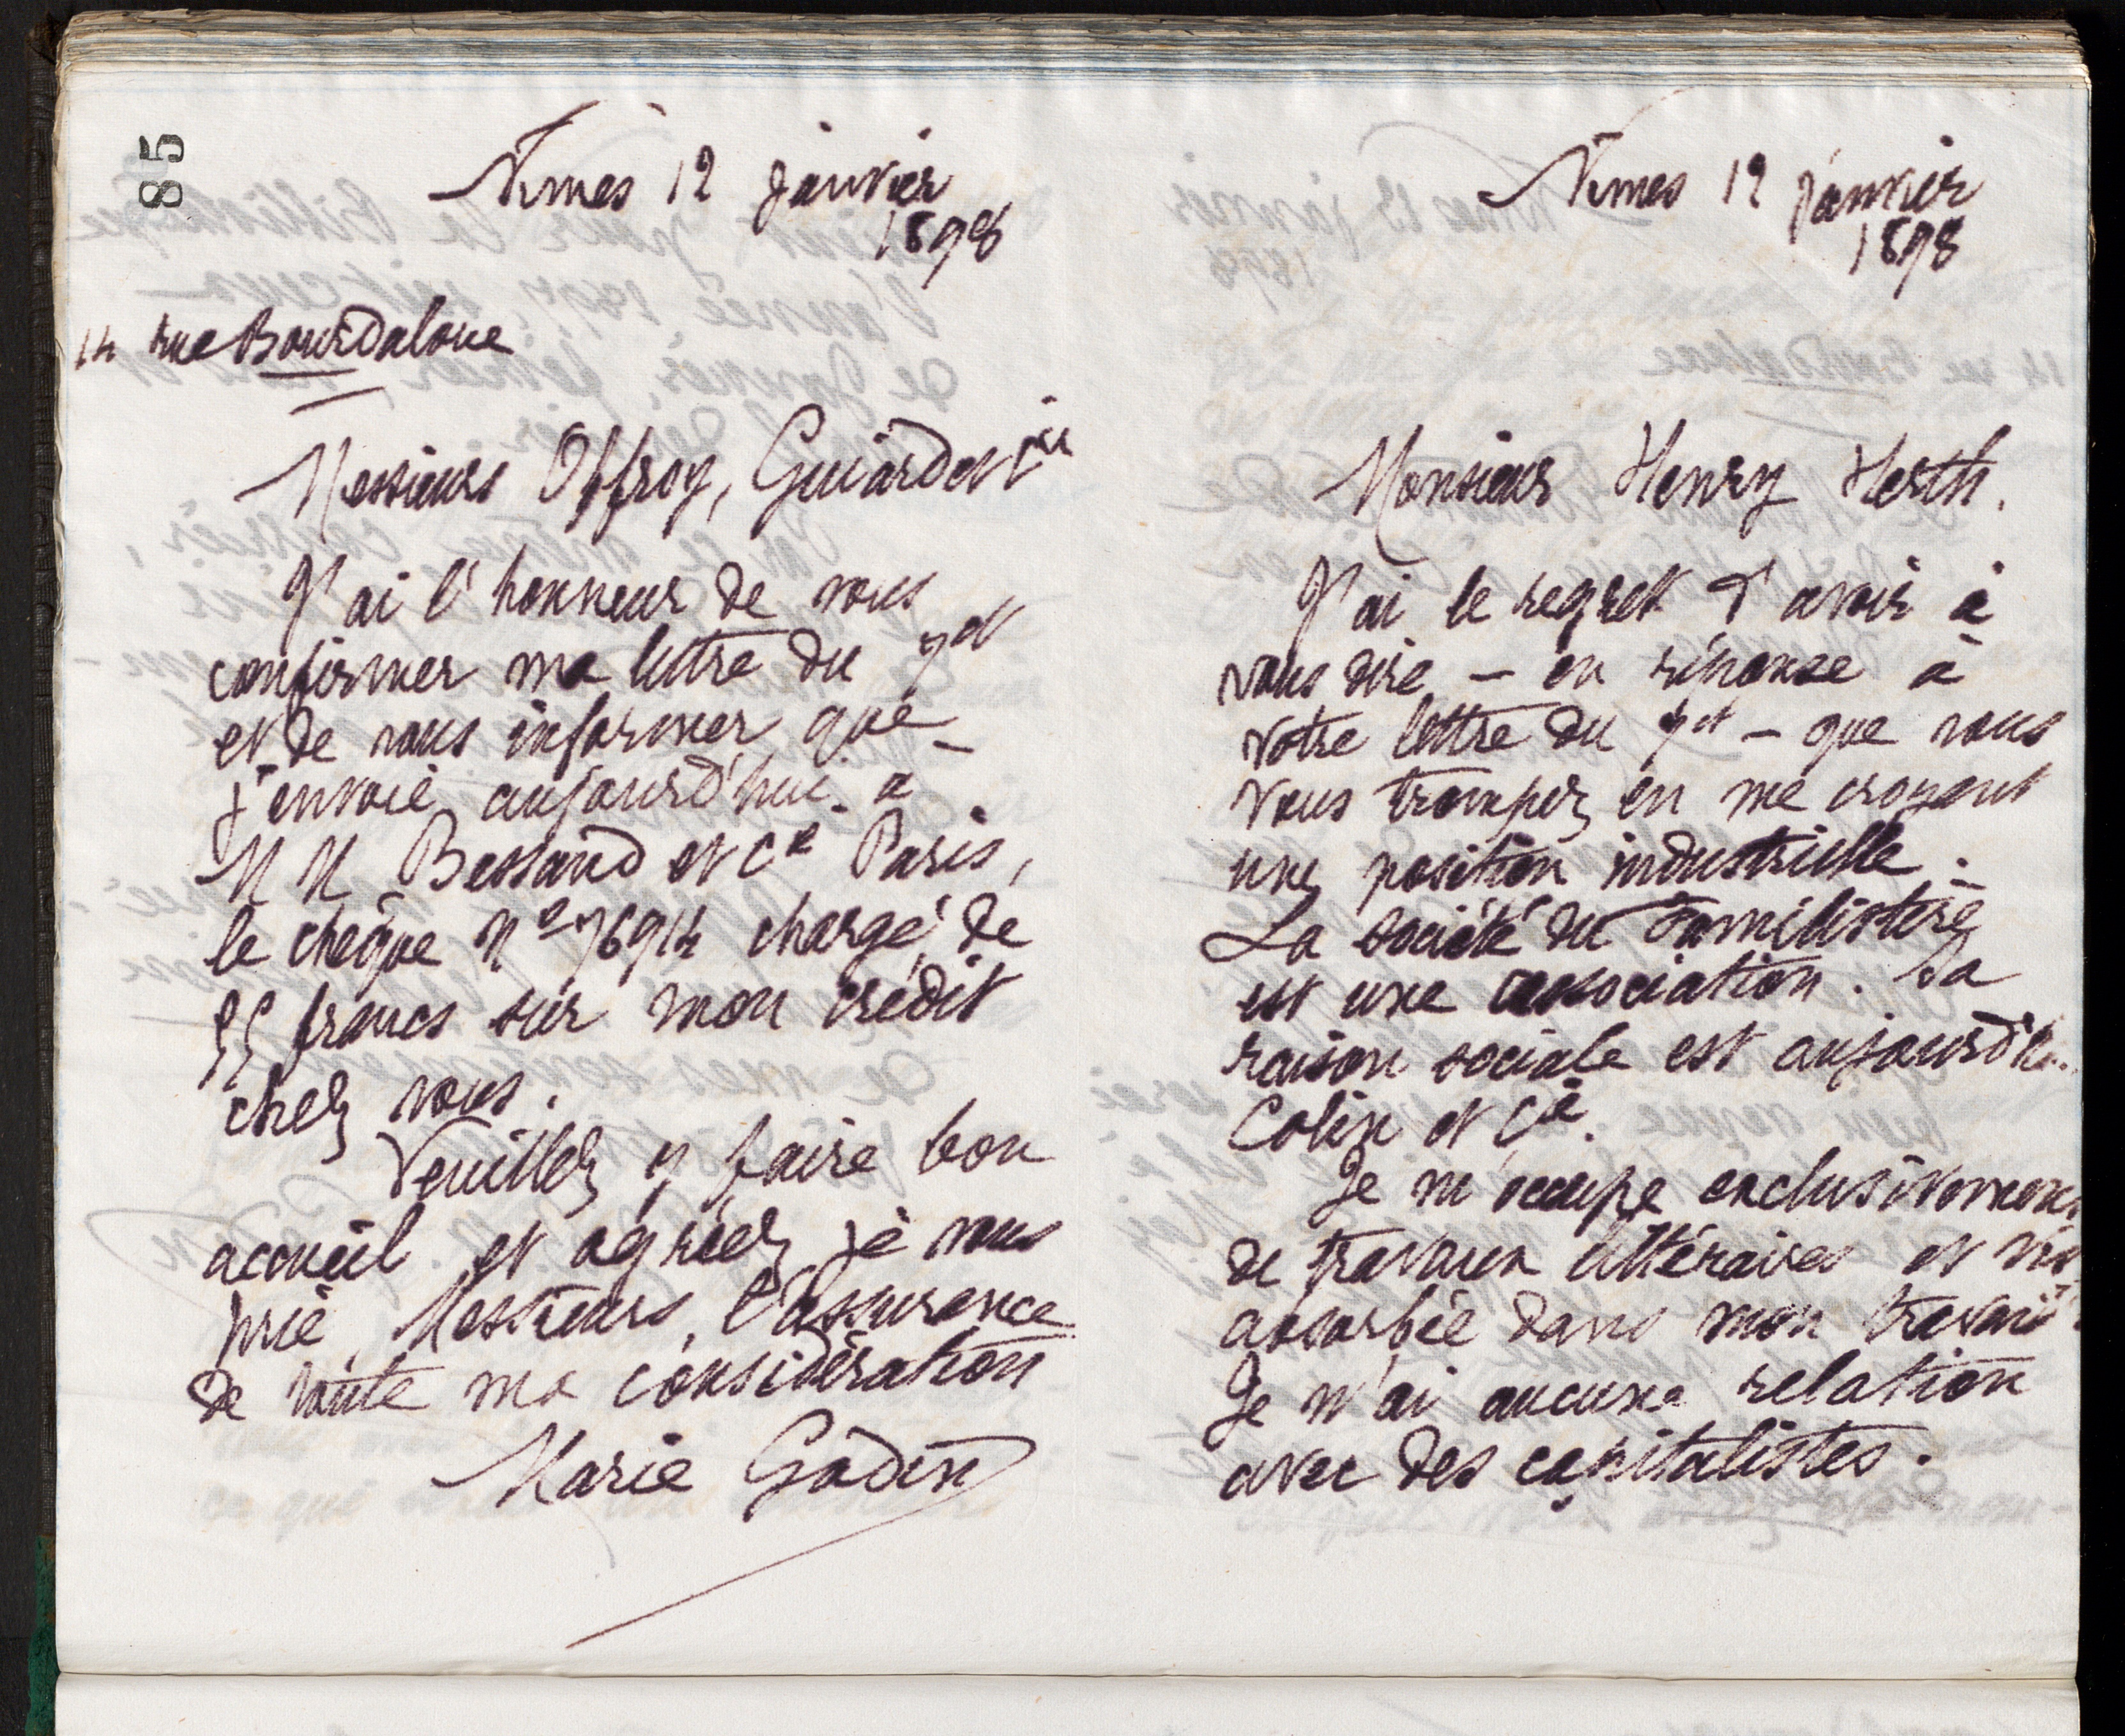 85
Nimes 12 janvier
1898
14 rue Bourdaloue
Messieurs Offroy, Guiard et Cie
J'ai l'honneur de vous
confirmer ma lettre du 7 ct
et de vous informer que
j'envoie aujourd'hui à
M M Bessand et Cie Paris,
le chèque No 76914 chargé de
55 francs sur mon crédit
chez vous.
Veuillez y faire bon
accueil et agréez, je vous
prie, Messieurs, l'assurance
de toute ma considération
Marie Godin
Nimes 12 janvier
1898
Monsieur Henry Herth.
J'ai le regret d'avoir à
vous dire - en réponse à
votre lettre du 7 ct - que vous
vous trompez en me croyant
une position industrielle.
La société du Familistère
est une association. Sa
raison sociale est aujourd'hu
Colin et Cie.
Je m'occupe exclusivement
de travaux littéraires et vis
absorbée dans mon travail.
Je n'ai aucune relation
avec des capitalistes.